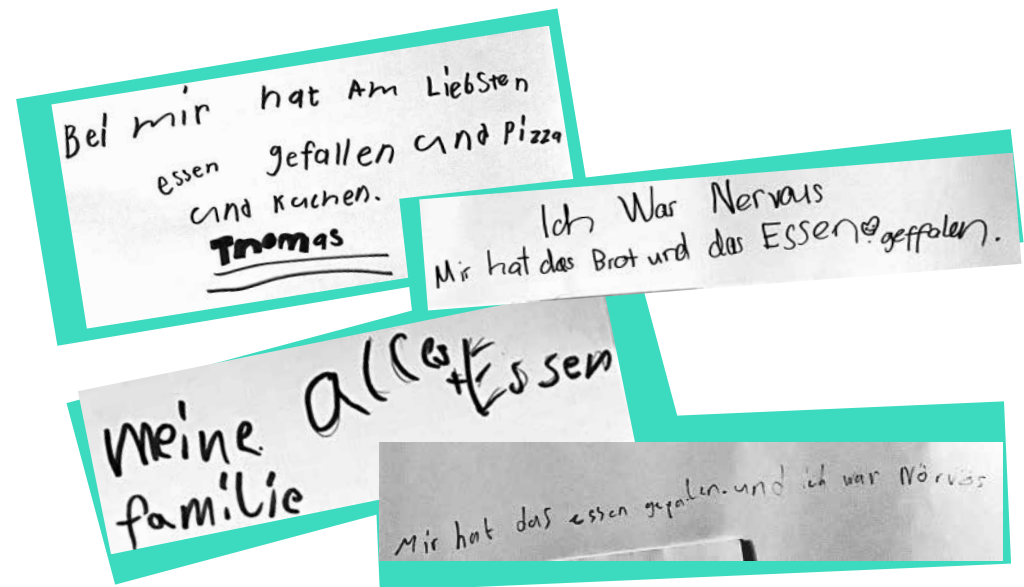 Bei mir hat Am Liebsten
essen gefallen und Pizza
und Kuchen.
Thomas
Ich War Nervous
Mir hat das Brot und das Essen geffalen.
alles + Essen
meine
familie
Mir hat das essen gefalen. und ich war Nörvös